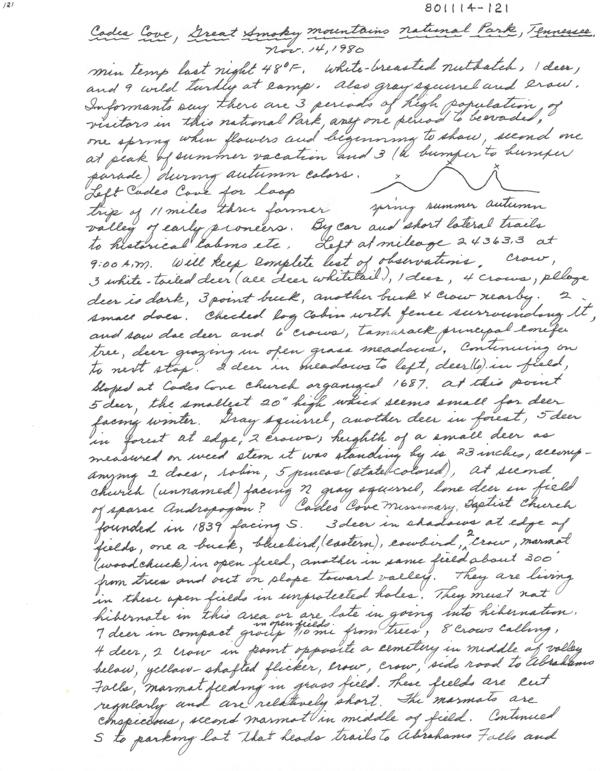 121
801114-121
Codes Cove, Great Smoky Mountains National Park, Tennessee.
Nov. 14, 1980
Min temp last night 48°F. White-breasted nuthatch, 1 deer,
and 9 wild turkey at camp. Also gray squirrel and crow.
Informants say there are 3 periods of high population, of
visitors in this national Park, any one period to be avoided,
one spring when flowers and beginning to show, second one
at peak of summer vacation and 3 (a bumper to bumper
parade) during autumn colors.
Left Codes Cove for loop
spring summer autumn
trip of 11 miles thru former
valley of early pioneers. By car and short lateral trails
to historical cabins etc. Left at mileage 24363.3 at
9:00 A.M. Will keep complete list of observations. Crow,
3 white-tailed deer (all deer whitetail), 1 deer, 4 crows, pelage
deer is dark, 3 point buck, another buck & crow nearby. 2
small does. Checked log cabin with fence surrounding it,
and saw doe deer and 6 crows, tamarack principal conifer
tree, deer grazing in open grass meadows. Continuing on
to next stop. 2 deer in meadows to left, deer (6) in field,
stoped at Codes Cove church organized 1687. At this point
5 deer, the smallest 20" high which seems small for deer
facing winter. Gray squirrel, another deer in forest, 5 deer
in forest at edge, 2 crows, heighth of a small deer as
measured on weed stem it was standing by is 23 inches, accomp-
anying 2 does, robin, 5 juncos (slate-colored), At second
church (unnamed) facing N gray squirrel, lone deer in field
of sparse Andropogon? Codes Cove Missionary Baptist Church
founded in 1839 facing S. 3 deer in shadows at edge of
fields, one a buck, bluebird, (eastern), cowbird, 2 crow, marmot
(woodchuck) in open field, another in same field about 300'
from trees and out on slope toward valley. They are living
in these open fields in unprotected holes. They must not
hibernate in this area or are late in going into hibernation.
7 deer in compact group in open fields 1/10 mi from trees, 8 crows calling,
4 deer, 2 crow in point opposite a cemetery in middle of valley
below, yellow-shafted flicker, crow, crow, side road to Abrahams
Falls, marmot feeding in grass field. These fields are cut
regularly and are relatively short. The marmots are
conspicuous, second marmot in middle of field. Continued
S to parking lot that heads trails to Abrahams Falls and